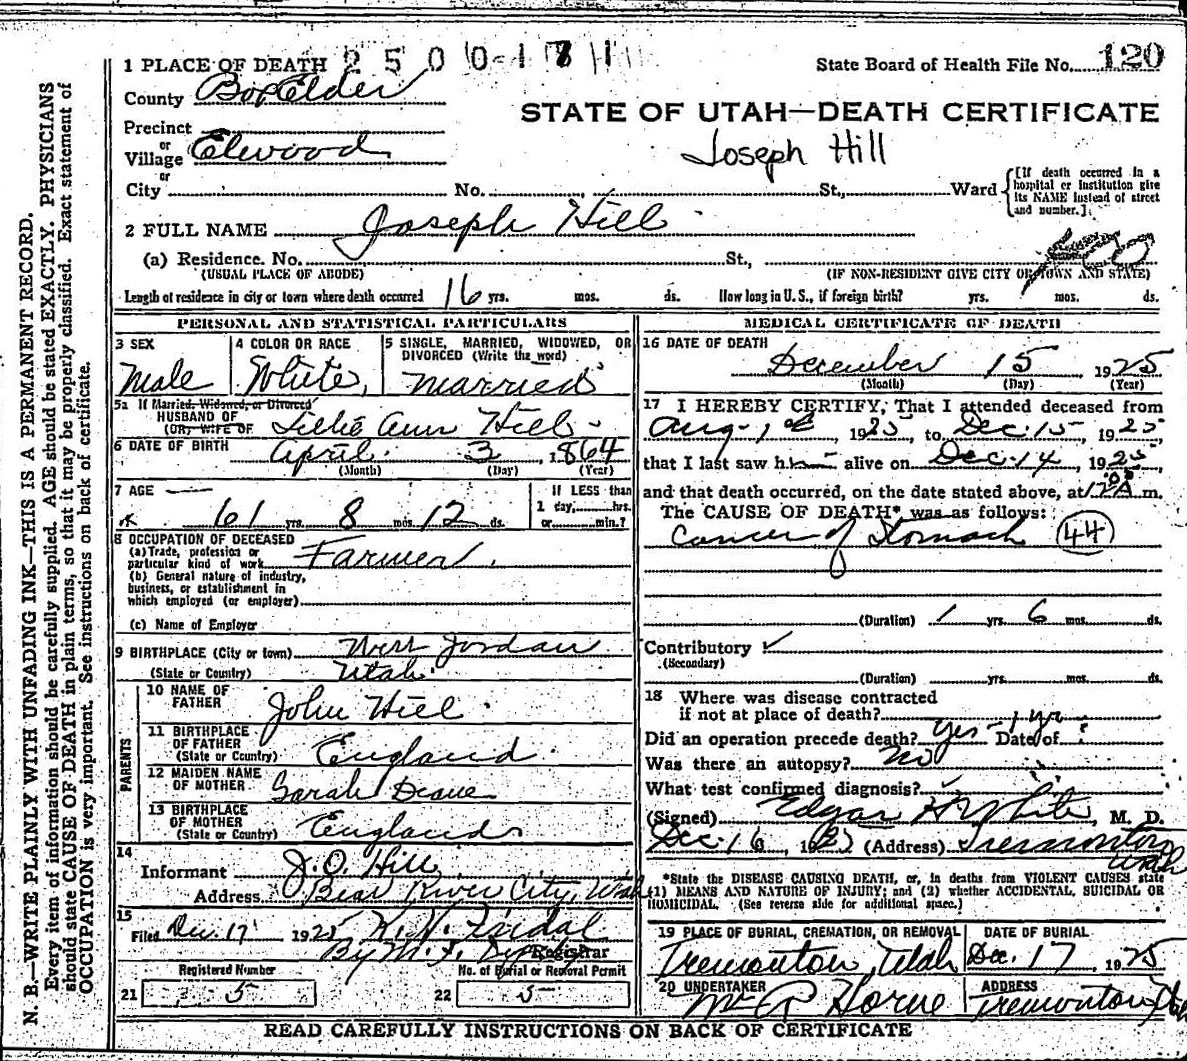 N. B.—WRITE PLAINLY WITH UNFADING INK—THIS IS A PERMANENT RECORD.
Every item of information should be carefully supplied. AGE should be stated EXACTLY. PHYSICIANS
should state CAUSE OF DEATH in plain terms, so that it may be properly classified. Exact statement of
OCCUPATION is very important. See instructions on back of certificate.
1 PLACE OF DEATH 2500171
State Board of Health File No. 120
County Box Elder
STATE OF UTAH—DEATH CERTIFICATE
Precinct
or
Village Elwood
Joseph Hill
or
City No. St., Ward
[If death occurred in a
hospital or institution give
its NAME instead of street
and number.]
2 FULL NAME Joseph Hill
(a) Residence. No. St.,
(USUAL PLACE OF ABODE) (IF NON-RESIDENT GIVE CITY OR TOWN AND STATE)
Length of residence in city or town where death occurred 16 yrs. mos. ds. How long in U. S., if foreign birth? yrs. mos. ds.
PERSONAL AND STATISTICAL PARTICULARS
3 SEX
Male
4 COLOR OR RACE
White
5 SINGLE, MARRIED, WIDOWED, OR
DIVORCED (Write the word)
Married
5a If Married, Widowed, or Divorced
HUSBAND OF
(OR) WIFE OF Ann Hill
6 DATE OF BIRTH April 3 1864
(Month) (Day) (Year)
7 AGE
61 yrs. 8 mos. 12 ds.
If LESS than
1 day, hrs.
or min.?
8 OCCUPATION OF DECEASED
(a) Trade, profession or
particular kind of work Farmer
(b) General nature of industry,
business, or establishment in
which employed (or employer)
(c) Name of Employer
9 BIRTHPLACE (City or town) West Jordan
(State or Country) Utah
PARENTS
10 NAME OF
FATHER John Hill
11 BIRTHPLACE
OF FATHER
(State or Country) England
12 MAIDEN NAME
OF MOTHER Sarah
13 BIRTHPLACE
OF MOTHER
(State or Country) England
14
Informant J. O. Hill
Address Bear River City, Utah
15
Filed Dec. 17 1925
By M. F.
Registrar
Registered Number No. of Burial or Removal Permit
21 5 22 5
MEDICAL CERTIFICATE OF DEATH
16 DATE OF DEATH
December 15 1925
(Month) (Day) (Year)
17 I HEREBY CERTIFY, That I attended deceased from
Aug. 1st 1925, to Dec. 15, 1925
that I last saw him alive on Dec. 14, 1925
and that death occurred, on the date stated above, at m.
The CAUSE OF DEATH* was as follows:
Cancer of Stomach 44
(Duration) 1 yrs. 6 mos. ds.
Contributory ✓
(Secondary)
(Duration) yrs. mos. ds.
18 Where was disease contracted
if not at place of death?
Did an operation precede death? Yes - 1 yr. Date of ?
Was there an autopsy? No
What test confirmed diagnosis?
(Signed) Edgar H White, M. D.
Dec. 16, 19 (Address) Tremonton
Utah
*State the DISEASE CAUSING DEATH, or, in deaths from VIOLENT CAUSES state
(1) MEANS AND NATURE OF INJURY; and (2) whether ACCIDENTAL, SUICIDAL OR
HOMICIDAL. (See reverse side for additional space.)
19 PLACE OF BURIAL, CREMATION, OR REMOVAL
Tremonton, Utah
DATE OF BURIAL
Dec. 17 1925
20 UNDERTAKER
Horne
ADDRESS
Tremonton
READ CAREFULLY INSTRUCTIONS ON BACK OF CERTIFICATE